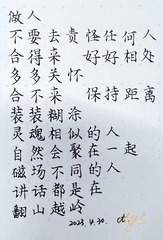 做人
不要去责怪任何人
合得来 好好相处
多多关怀
合不来 保持距离
装装糊涂
灵魂相似的人
自然会聚在一起
磁场不同的人
讲话都是在
翻山越岭
2023.4.30.